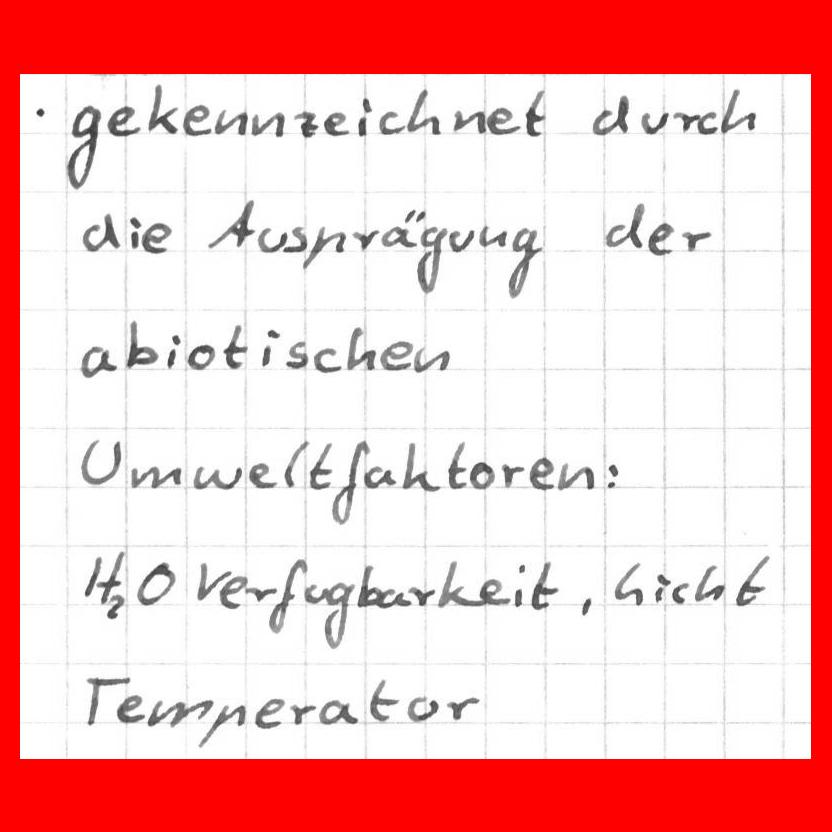 · gekennzeichnet durch
die Ausprägung der
abiotischen
Umweltfaktoren:
H₂O Verfugbarkeit, hicht
Temperatur